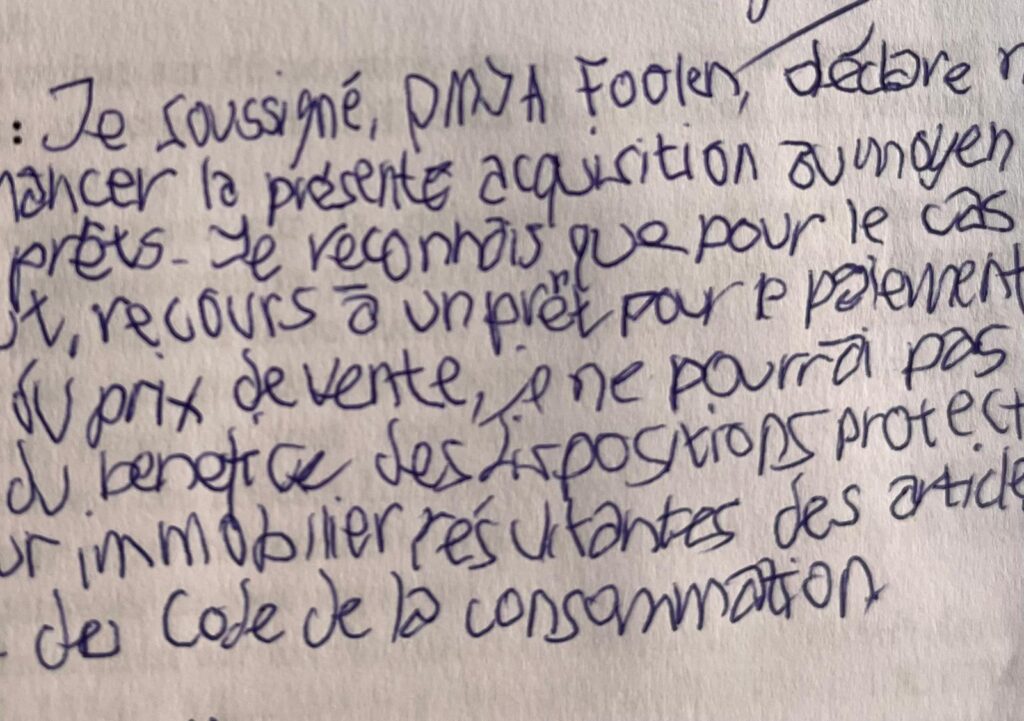 : Je soussigné, PMJA Foolen, déclare n
nancer la présente acquisition au moyen
prêts. Je reconnais que pour le cas
t, recours à un prêt pour le paiement
du prix de vente, je ne pourrai pas
du benefice des dispositions protect
ur immobilier résultantes des article
de Code de la consommation